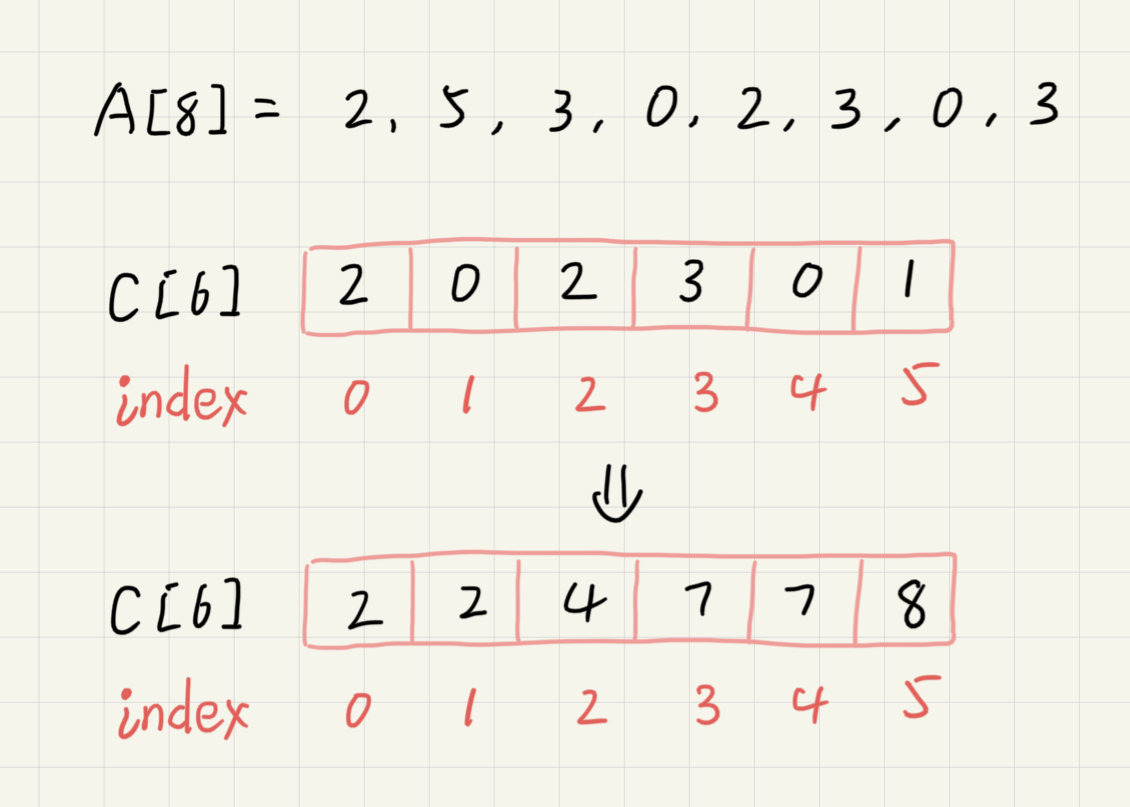 A[8] = 2, 5, 3, 0, 2, 3, 0, 3
C[6] 2 0 2 3 0 1
index 0 1 2 3 4 5
⇓
C[6] 2 2 4 7 7 8
index 0 1 2 3 4 5